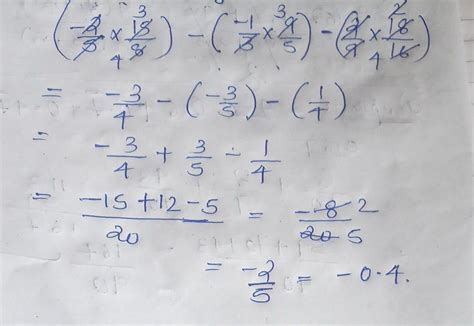 (-2/5 × 3 15/8 4) - (-1/3 × 3 9/5) - (2/9 × 2 18/16 4)
= -3/4 - (-3/5) - (1/4)
= -3/4 + 3/5 - 1/4
= -15+12-5/20 = -8 2/20 5
= -2/5 = -0.4.